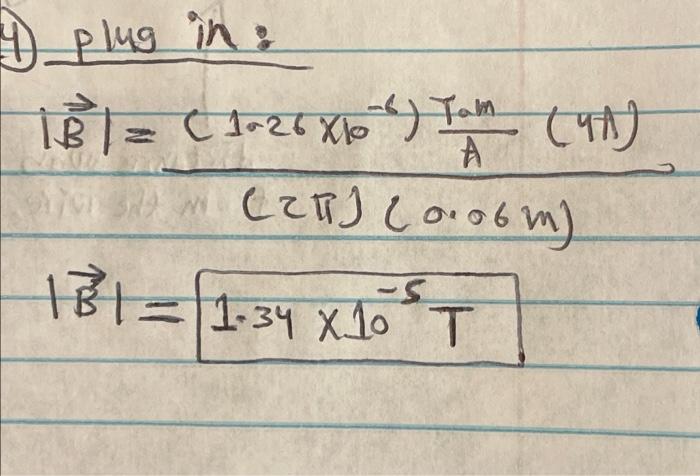 4) plug in:
|B⃗| = (1.26 X10^-6) T.m/A (4A) / (2π) (0.06m)
|B⃗| = 1.34 X10^-5 T